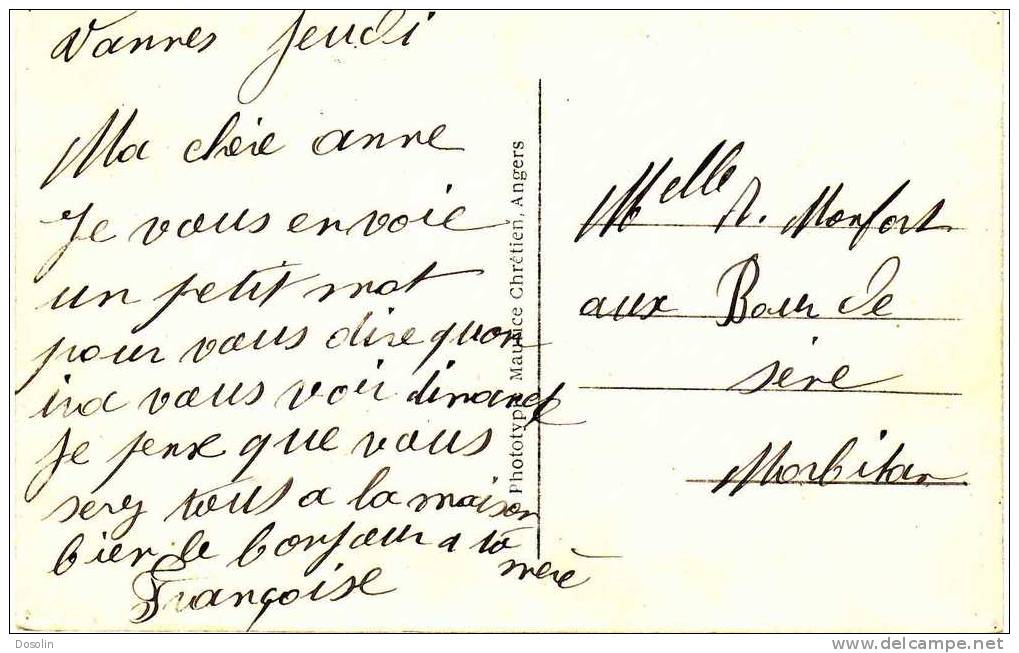 Vannes Jeudi
Ma chère anne
Je vous envoie
un petit mot
pour vous dire quon
ira vous voir dimanche
Je pense que vous
sery tous a la maison
bien le bonjour a ta
mère
Françoise
Phototypie Maurice Chrétien, Angers
Melle A. Monfort
aux Bour de
séné
Morbihan
Dosolin
http://www.delcampe.net